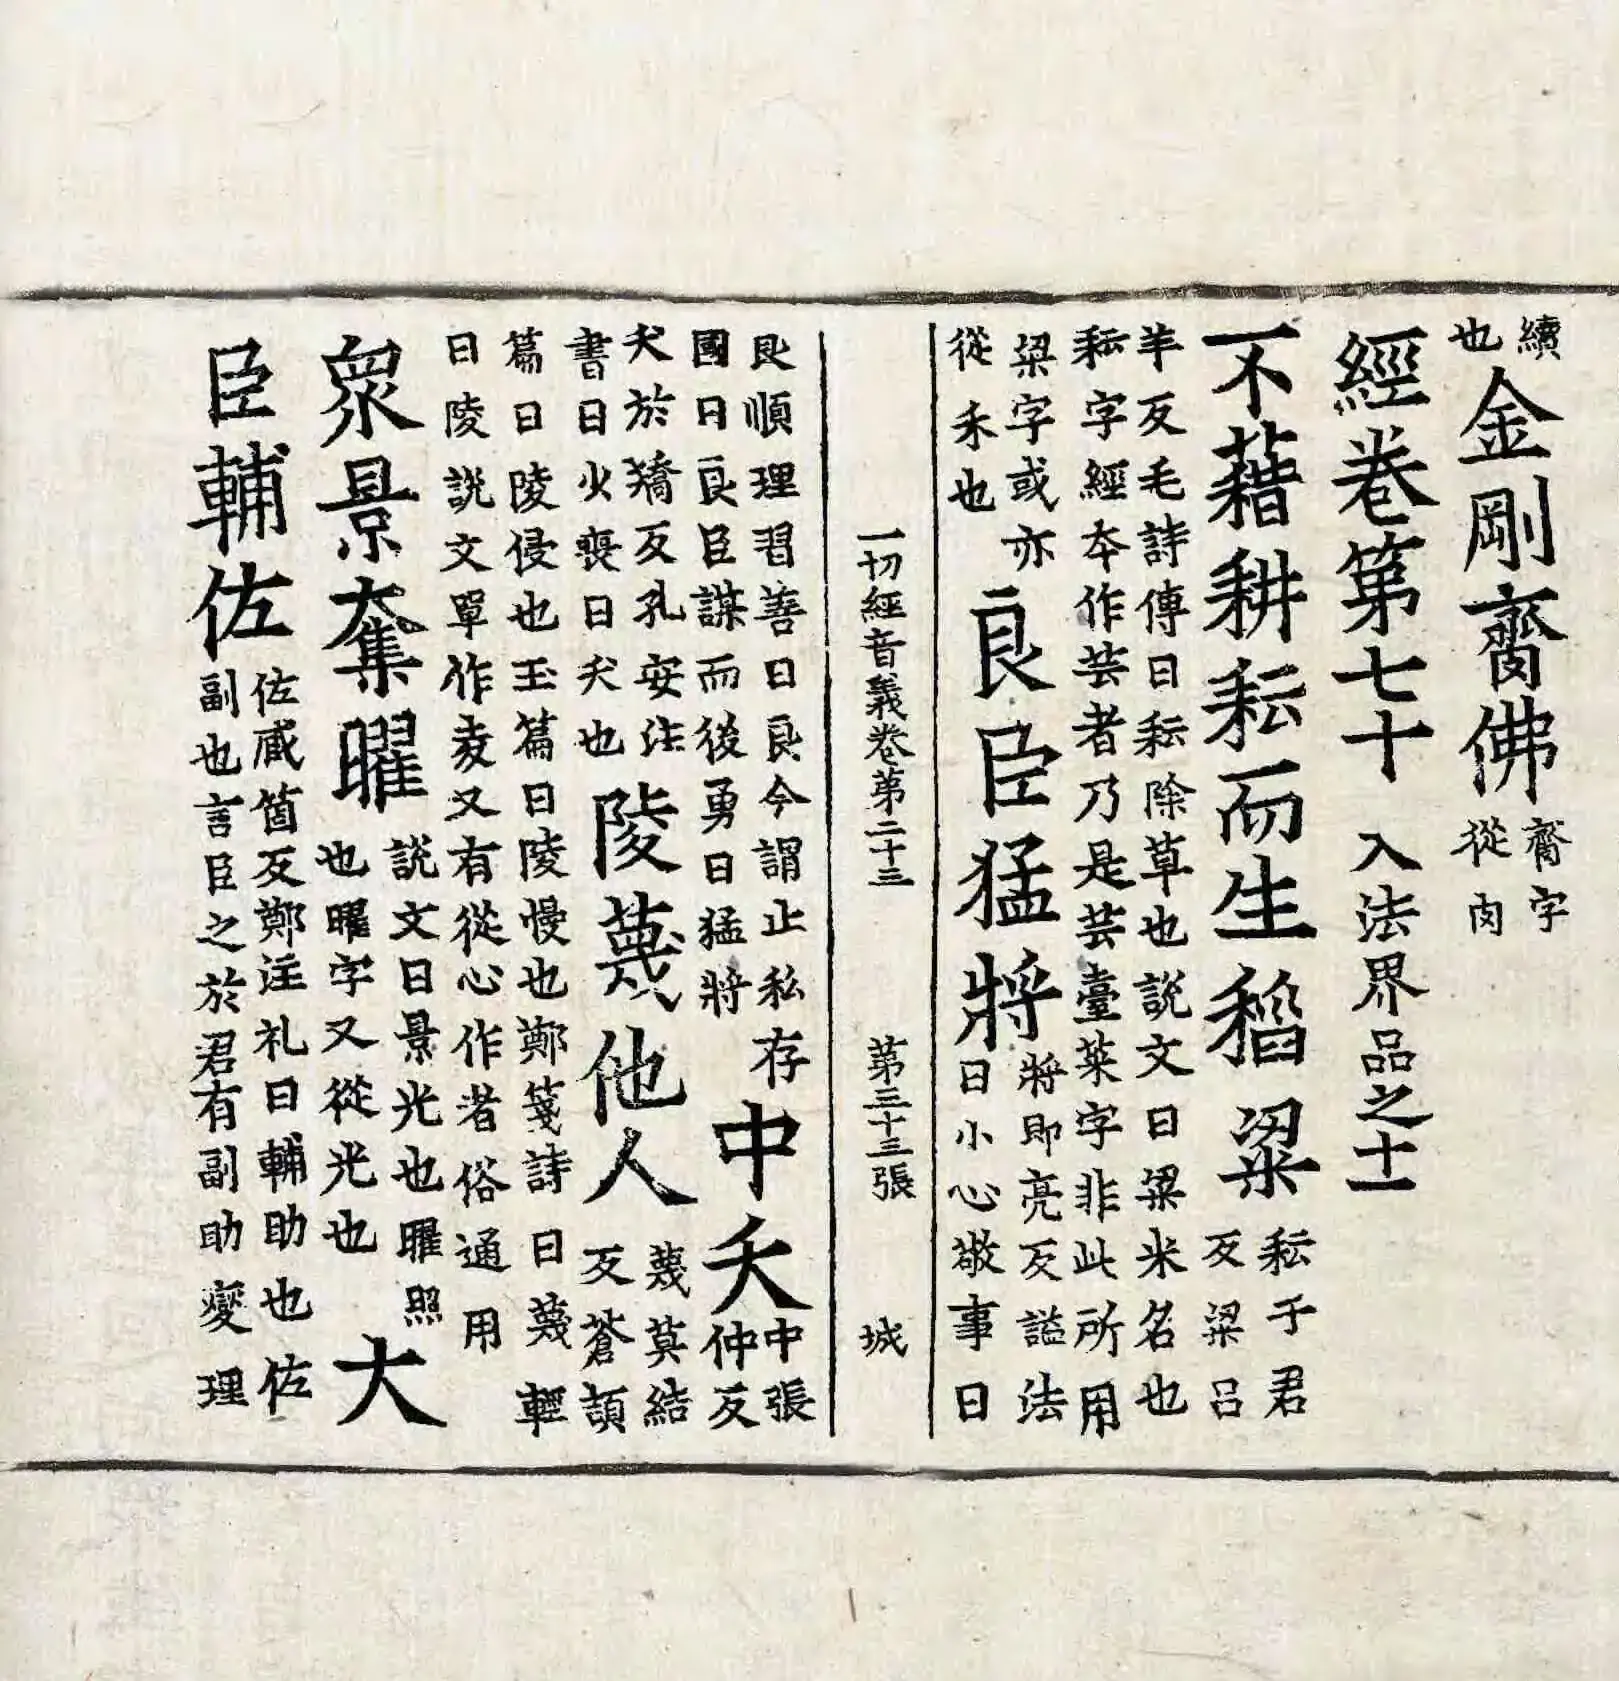 續也金剛齎佛齎字從肉
經卷第七十入法界品之十一
不藉耕耘而生稻粱耘于君反粱呂
羊反毛詩傳曰耘除草也說文曰粱米名也
耘字經本作芸者乃是芸臺菜字非此所用
粱字或亦從禾也良臣猛將將即亮反謚法曰小心敬事曰
一切經音義卷第二十三 第三十三張 城
良順理習善曰良今謂止私存國曰良臣謀而後勇曰猛將中夭中張仲反
夭於矯反孔安注書曰火喪曰夭也陵蔑他人蔑莫結反蒼頡
篇曰陵侵也玉篇曰陵慢也鄭箋詩曰蔑輕
曰陵說文單作夌又有從心作者俗通用
眾景奪曜說文曰景光也曜照也曜字又從光也大
臣輔佐佐臧箇反鄭注礼曰輔助也佐副也言臣之於君有副助變理